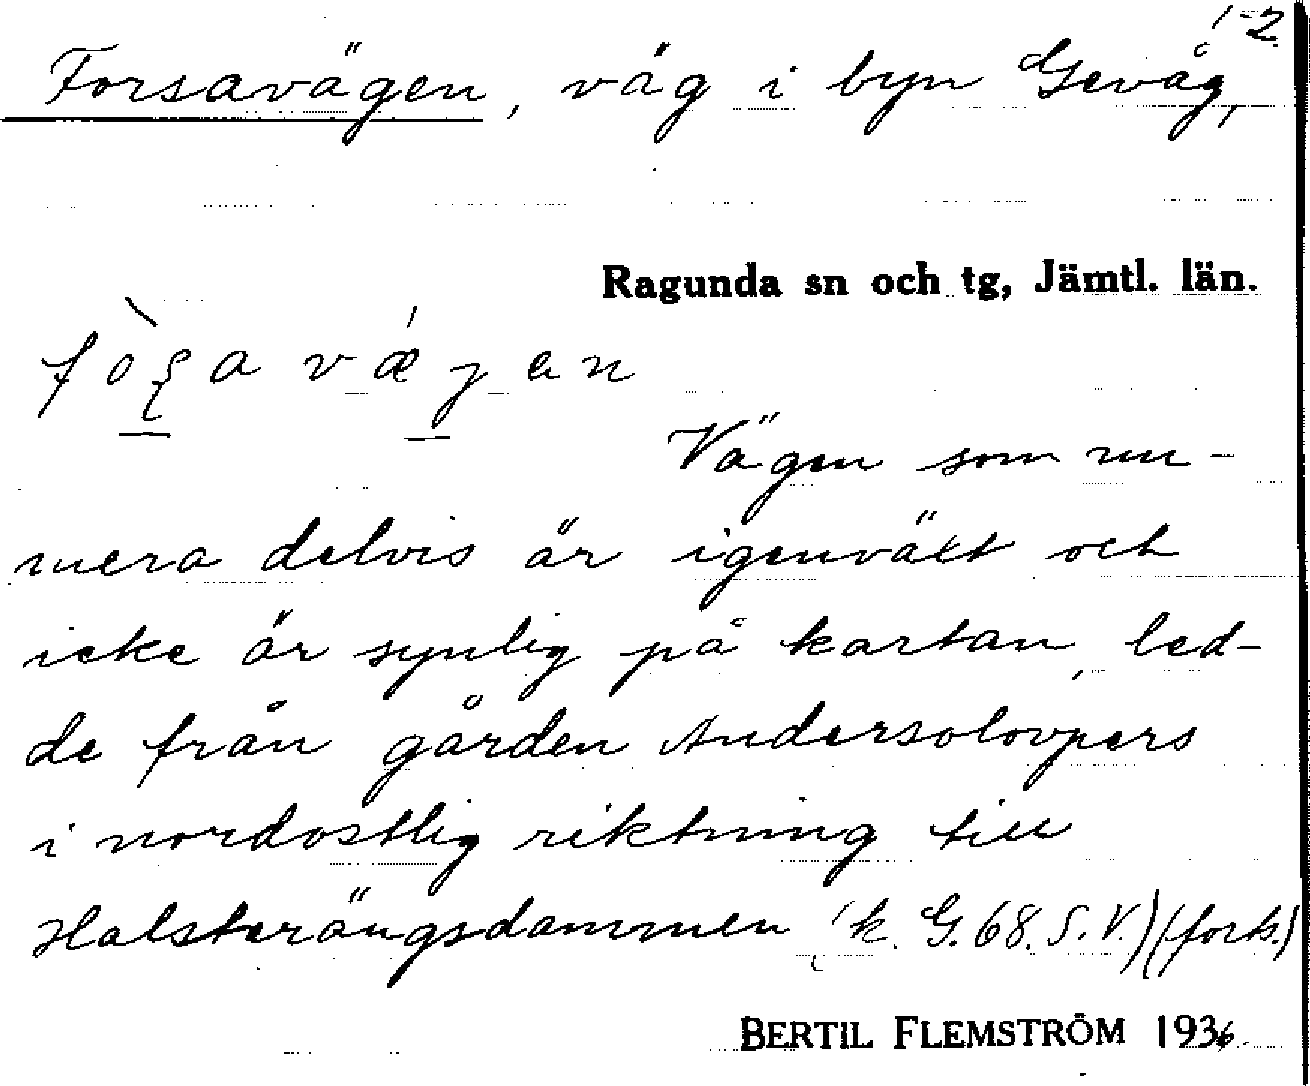 1-2
Forsavägen, väg i byn Gevåg,
Ragunda sn och tg, Jämtl. län.
Vägen som nu-
mera delvis är igenväxt och
icke är synlig på kartan, led-
de från gården Andersolovpers
i nordostlig riktning till
Halsterängsdammen (k. G. 68. S. V.) (forts.)
BERTIL FLEMSTRÖM 1936